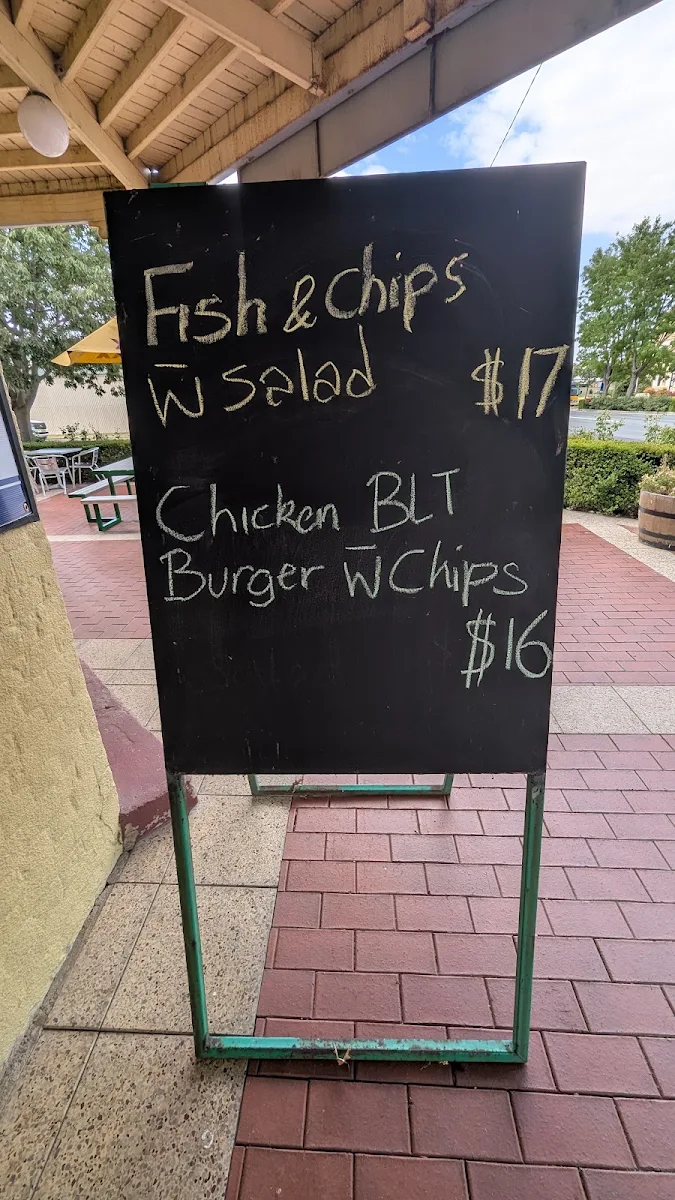 Fish & Chips
w̅ Salad $17
Chicken BLT
Burger w̅ Chips
$16